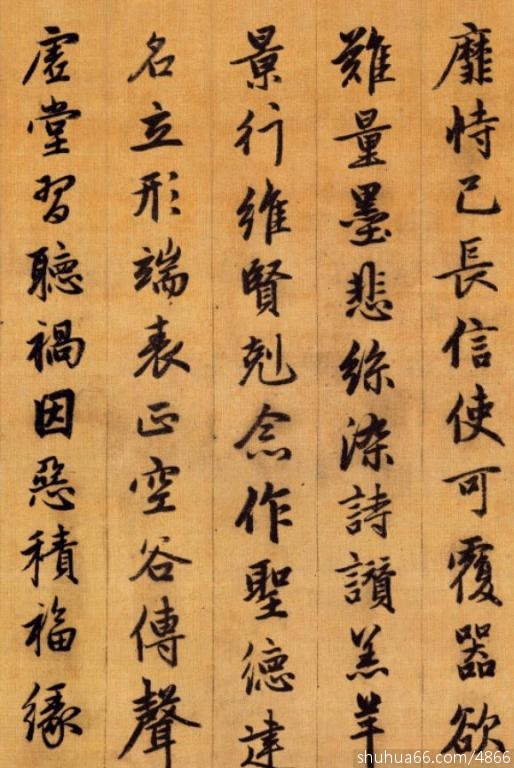 靡恃己長信使可覆器欲
難量墨悲絲染詩讚羔羊
景行維賢剋念作聖德建
名立形端表正空谷傳聲
虛堂習聽禍因惡積福緣
shuhua66.com/4866